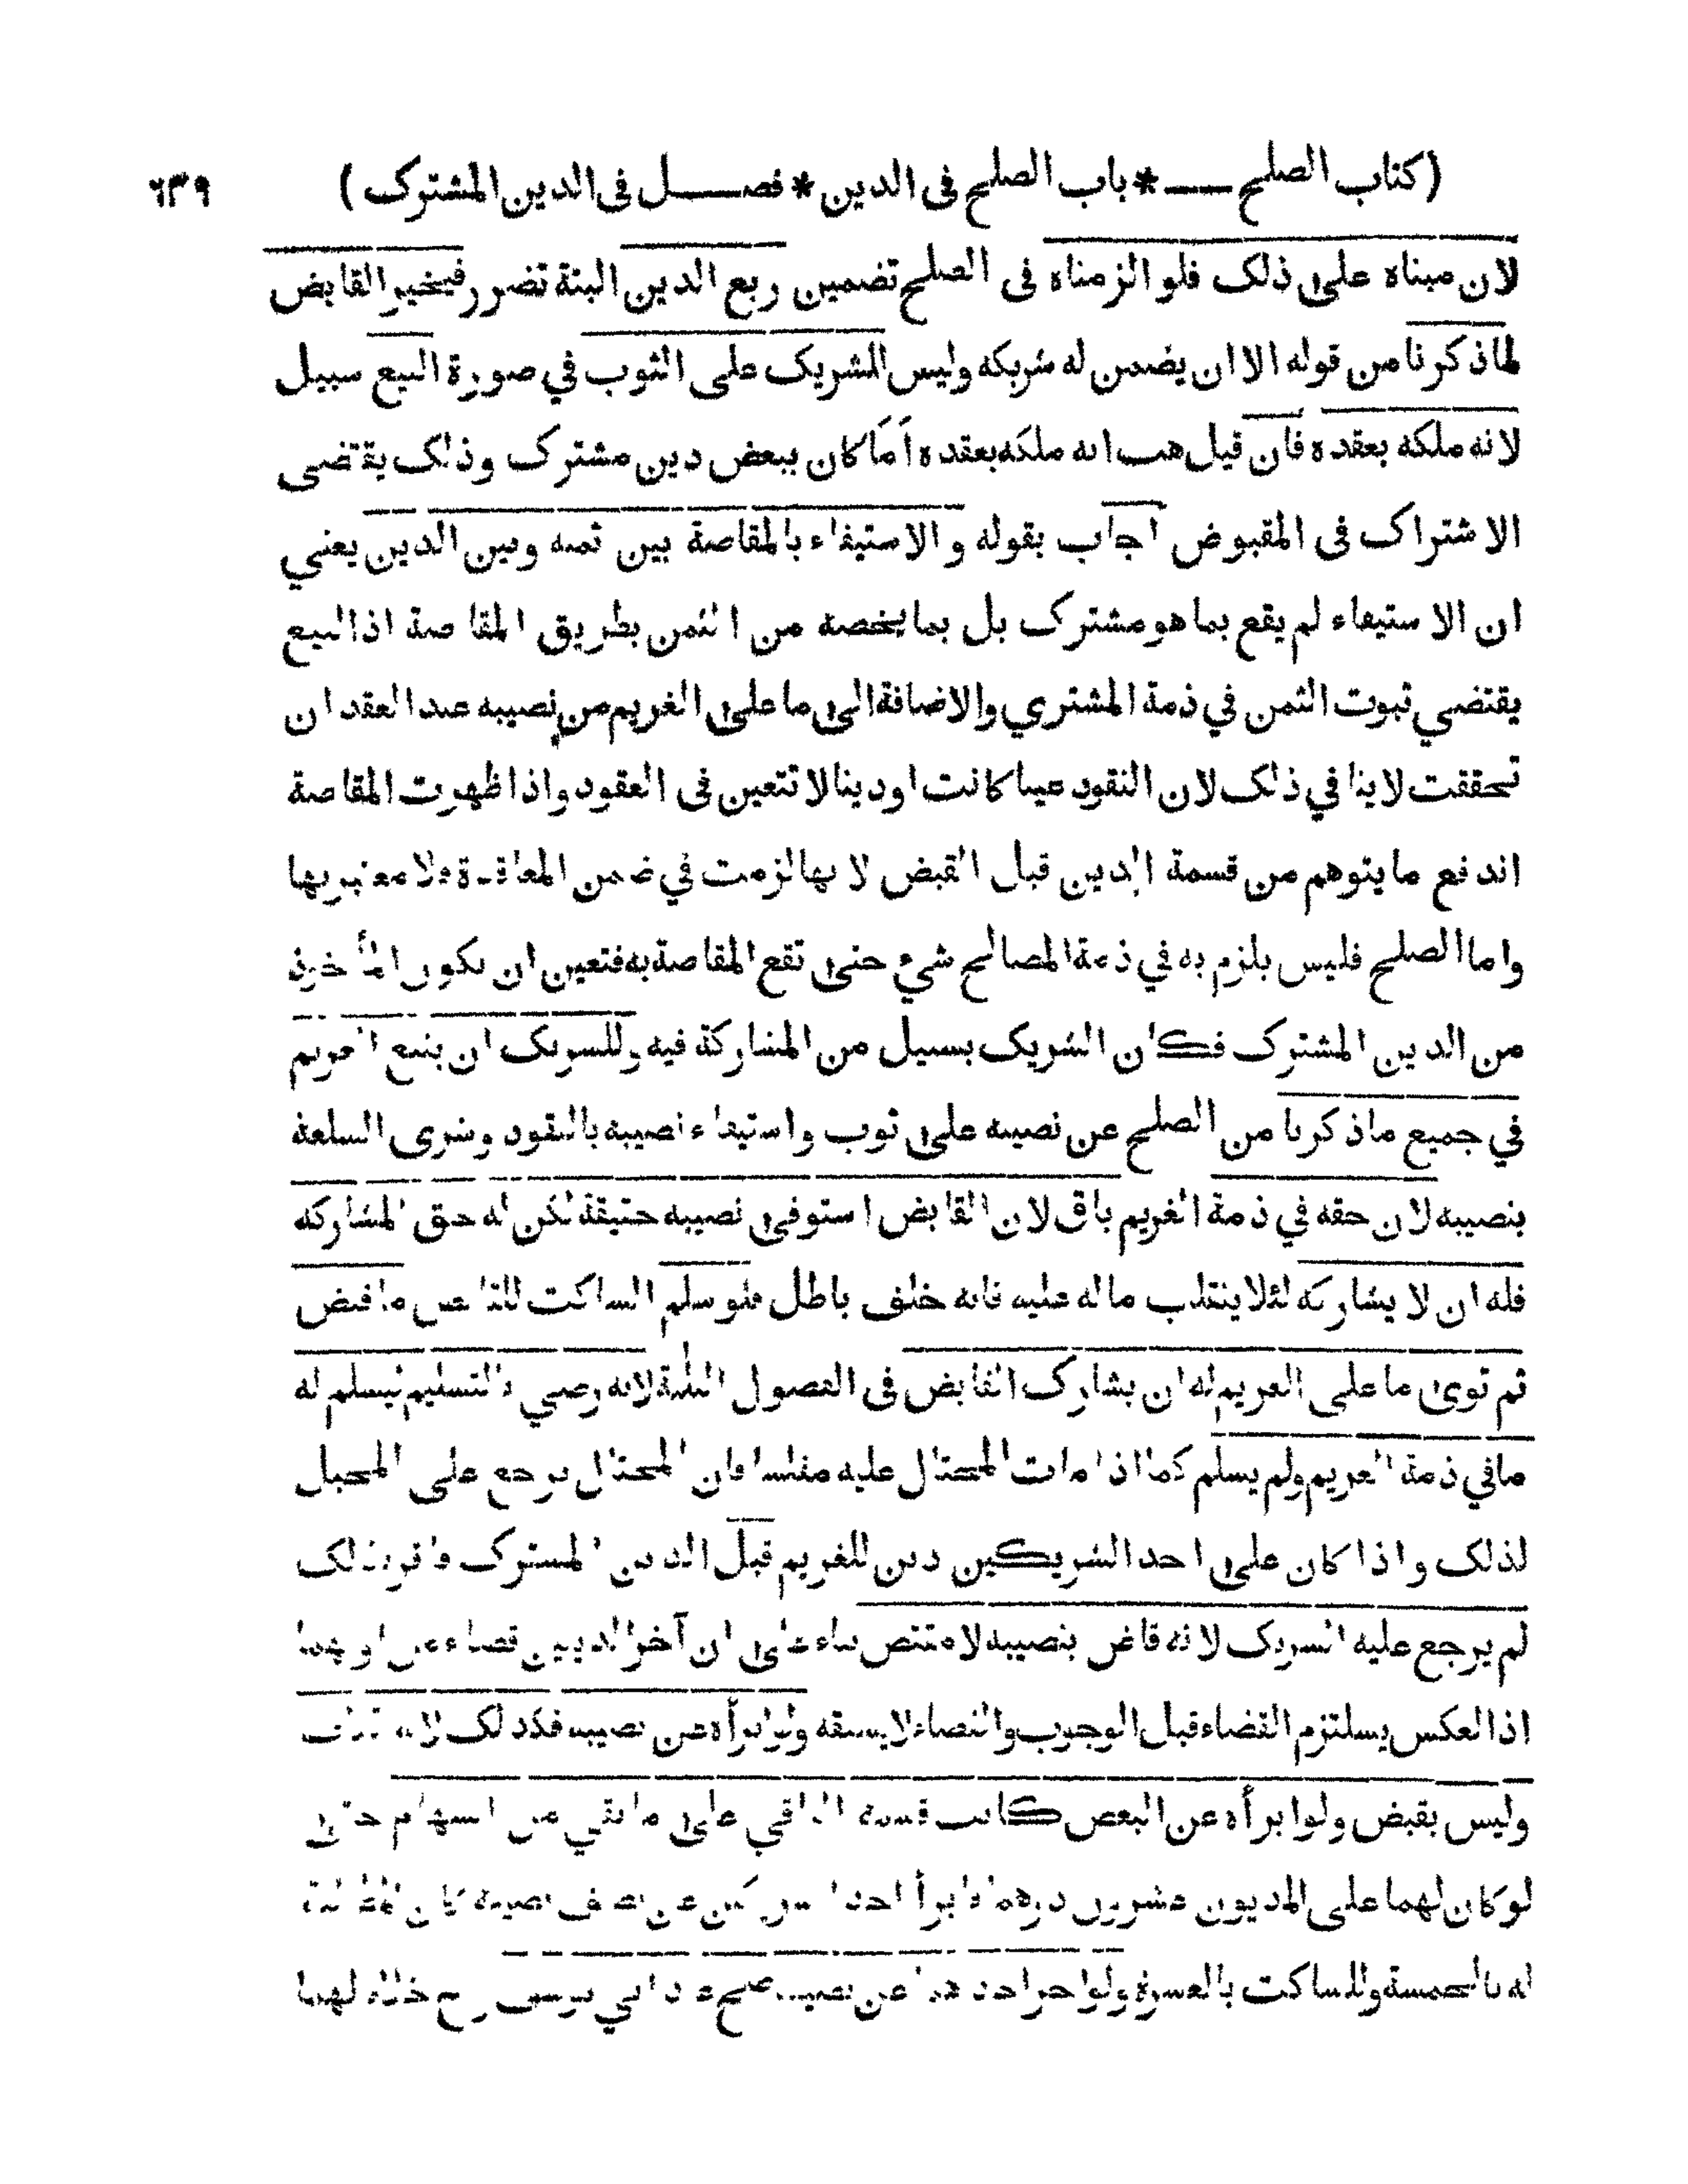 (كتاب الصلح — * باب الصلح فى الدين * فصل فى الدين المشترك) ٦٣٩
لان مبناه على ذلك فلو الزمناه فى الصلح تضمين ربع الدين البتة تضرر فيخير القابض
لما ذكرنا من قوله الا ان يضمن له شريكه وليس للشريك على الثوب في صورة البيع سبيل
لانه ملكه بعقده فان قيل هب انه ملكه بعقده اما كان ببعض دين مشترك وذلك يقتضى
الاشتراك فى المقبوض اجاب بقوله والاستيفاء بالمقاصة بين ثمنه وبين الدين يعني
ان الاستيفاء لم يقع بما هو مشترك بل بما يخصه من الثمن بطريق المقاصة اذ البيع
يقتضي ثبوت الثمن في ذمة المشتري والاضافة الى ما على الغريم من نصيبه عند العقد ان
تحققت لاينافي ذلك لان النقود عينا كانت او دينا لا تتعين فى العقود واذا ظهرت المقاصة
اندفع ما يتوهم من قسمة الدين قبل القبض لانها لزمت في ضمن المعاقدة فلا معتبر بها
واما الصلح فليس يلزم به في ذمة المصالح شيء حتى تقع المقاصة به فتعين ان يكون المأخوذ
من الدين المشترك فكان الشريك بسبيل من المشاركة فيه وللشريك ان يتبع الغريم
في جميع ما ذكرنا من الصلح عن نصيبه على ثوب واستيفاء نصيبه بالنقود وشرى السلعة
بنصيبه لان حقه في ذمة الغريم باق لان القابض استوفى نصيبه حقيقة لكن له حق المشاركة
فله ان لا يشاركه لئلا ينقلب ماله عليه فانه خلف باطل فلو سلم الساكت للقابض ما قبض
ثم توى ما على الغريم له ان يشارك القابض فى الفصول الثلثة لانه رضي بالتسليم ليسلم له
مافي ذمة الغريم ولم يسلم كما اذا مات المحتال عليه مفلسا فان المحتال يرجع على المحيل
لذلك واذا كان على احد الشريكين دين للغريم قبل الدين المشترك فاقر بذلك
لم يرجع عليه الشريك لانه قاض بنصيبه لا مقتض بناء على ان آخر الدينين قضاء عن اولهما
اذ العكس يستلزم القضاء قبل الوجوب والقضاء لايسبقه ولو ابرأه عن نصيبه فكذلك لانه اتلاف
وليس بقبض ولو ابرأه عن البعض كانت قسمة الباقي على ما بقي من السهام حتى
لو كان لهما على المديون عشرون درهما فابرأ احد الشريكين عن نصف نصيبه كان المطالبة
له بالخمسة وللساكت بالعشرة ولو اخر احدهما عن نصيبه صح عند ابي يوسف رح خلافا لهما